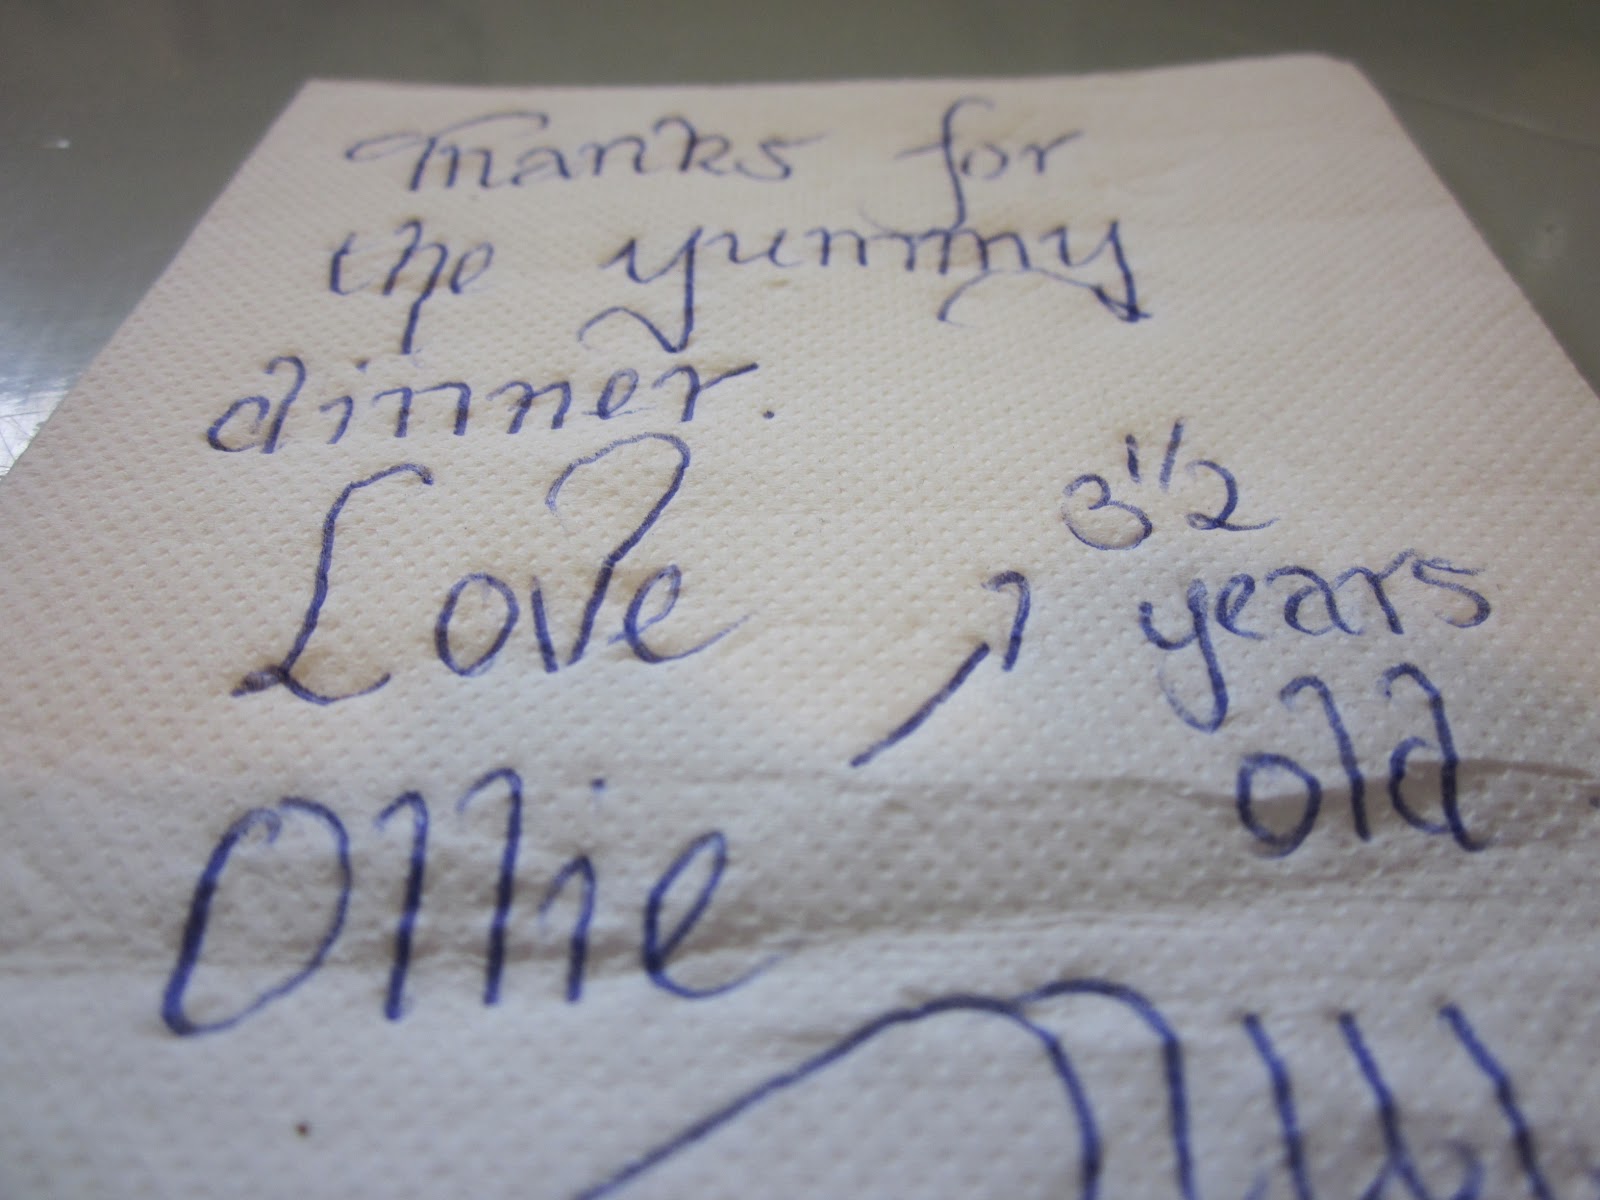 Thanks for
the yummy
dinner.
Love
3 1/2
years
old
Ollie